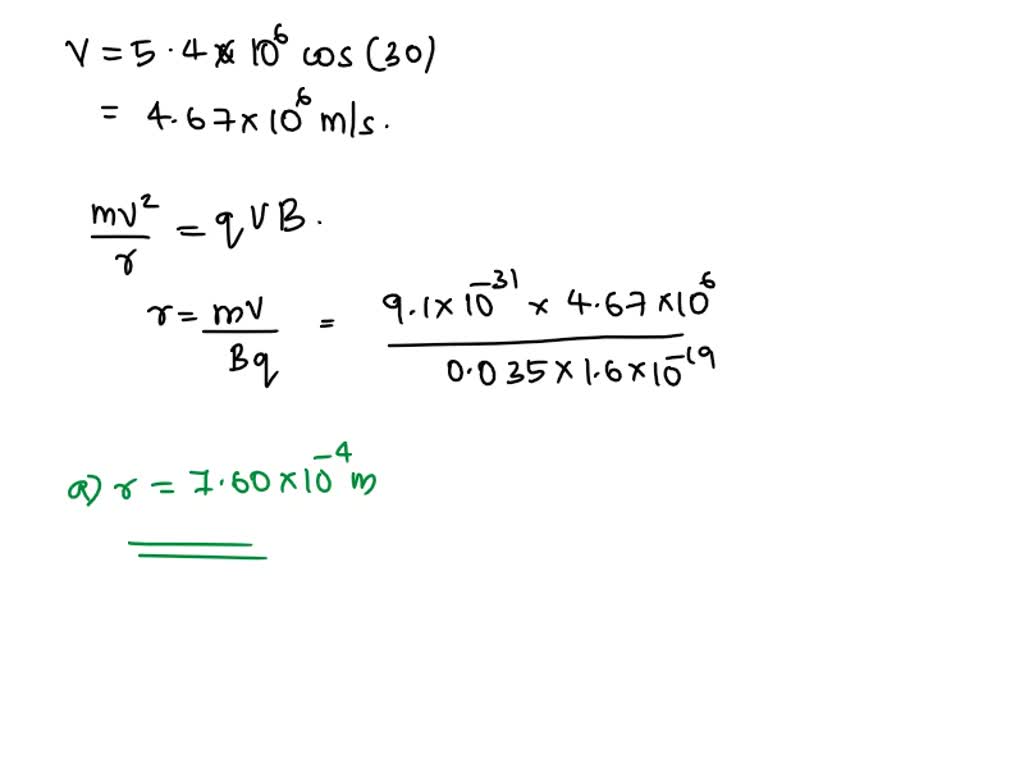 V = 5.4 × 10⁶ cos (30)
= 4.67 × 10⁶ m/s.
mv²/r = qVB.
r = mV/Bq = 9.1 × 10⁻³¹ × 4.67 × 10⁶ / 0.035 × 1.6 × 10⁻¹⁹
a) r = 7.60 × 10⁻⁴ m